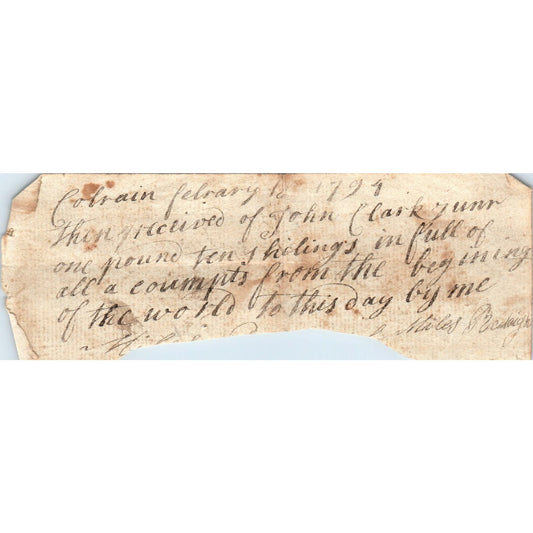 Colrain febrary 1794
then received of John Clark junr
one pound ten shilings in full of
all a coumpts from the begining
of the world to this day by me
Miles